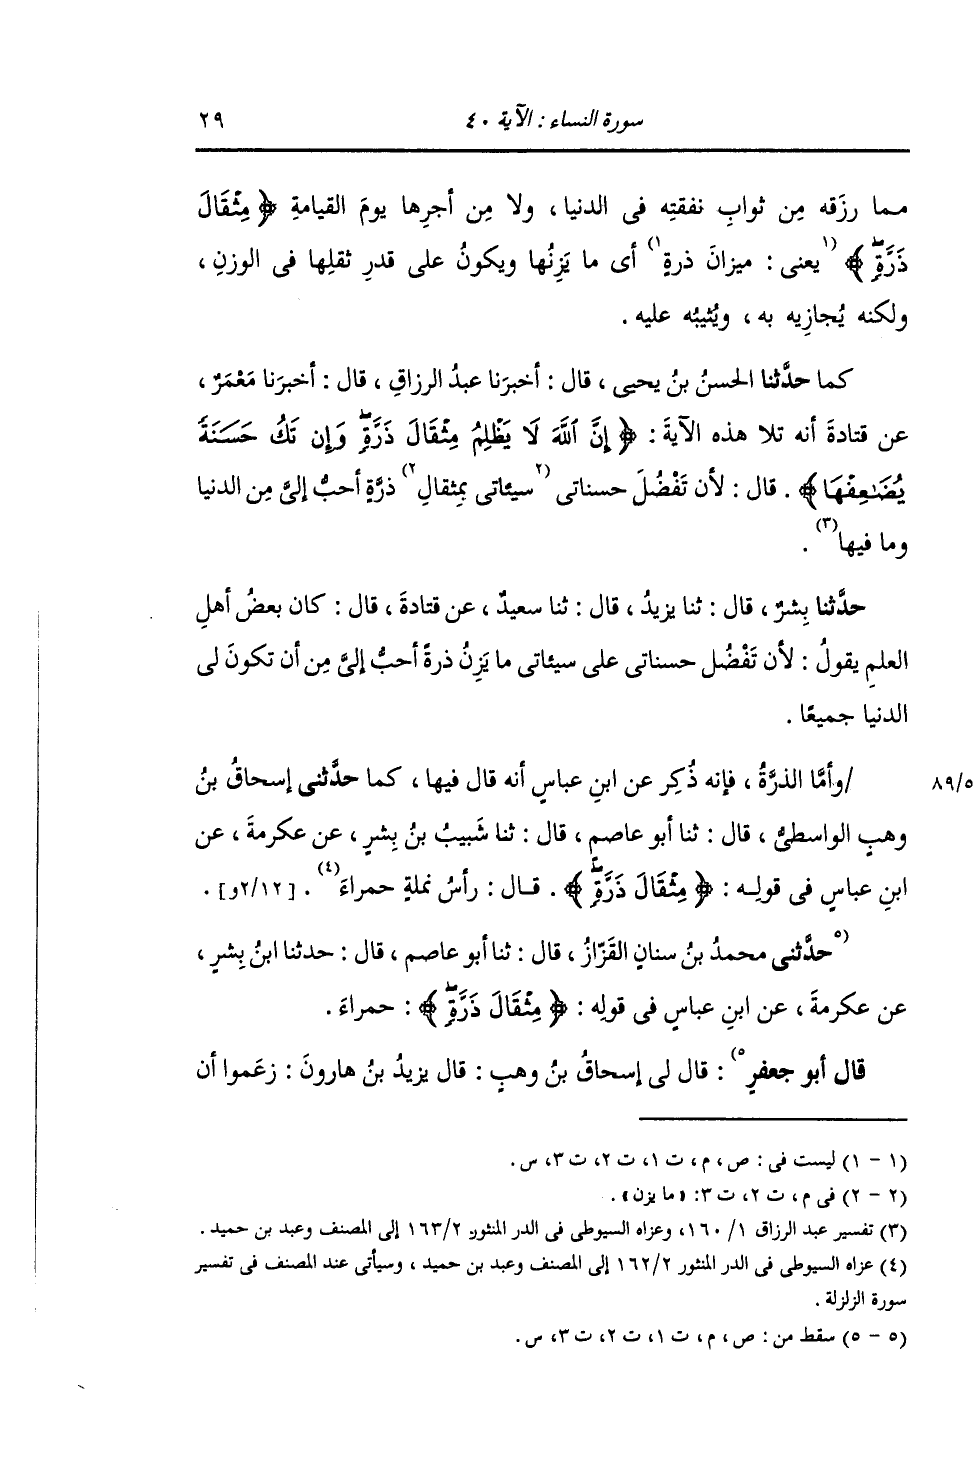 سورة النساء : الآية ٤٠
٢٩
مـما رزَقه مِن ثوابِ نفقتِه فى الدنيا ، ولا مِن أجرِها يومَ القيامةِ ﴿ مِثْقَالَ
ذَرَّةٍ ﴾ (١ يعنى : ميزانَ ذرةٍ ١) أى ما يَزِنُها ويكونُ على قدرِ ثقلِها فى الوزنِ ،
ولكنه يُجازِيه به ، ويُثيبُه عليه .
كما حدَّثنا الحسنُ بنُ يحيى ، قال : أخبرَنا عبدُ الرزاقِ ، قال : أخبرَنا مَعْمَرٌ ،
عن قتادةَ أنه تلا هذه الآيةَ : ﴿ إِنَّ ٱللَّهَ لَا يَظْلِمُ مِثْقَالَ ذَرَّةٍۖ وَإِن تَكُ حَسَنَةً
يُضَـٰعِفْهَا ﴾ . قال : لأن تَفْضُلَ حسناتى (٢ سيئاتى بمثقالِ ٢) ذرَّةٍ أحبُّ إلىَّ مِن الدنيا
وما فيها (٣) .
حدَّثنا بِشرٌ ، قال : ثنا يزيدُ ، قال : ثنا سعيدٌ ، عن قتادةَ ، قال : كان بعضُ أهلِ
العلمِ يقولُ : لأن تَفْضُل حسناتى على سيئاتى ما يَزِنُ ذرةً أحبُّ إلىَّ مِن أن تكونَ لى
الدنيا جميعًا .
/وأمَّا الذرَّةُ ، فإنه ذُكِر عن ابنِ عباسٍ أنه قال فيها ، كما حدَّثنى إسحاقُ بنُ
٨٩/٥
وهبٍ الواسطىُّ ، قال : ثنا أبو عاصمٍ ، قال : ثنا شَبيبُ بنُ بِشرٍ ، عن عكرمةَ ، عن
ابنِ عباسٍ فى قولِـه : ﴿ مِثْقَالَ ذَرَّةٍۖ ﴾ . قـال : رأسُ نملةٍ حمراءَ (٤) . [٢/١٢و] .
(٥ حدَّثنى محمدُ بنُ سنانٍ القَزّازُ ، قال : ثنا أبو عاصمٍ ، قال : حدثنا ابنُ بِشرٍ ،
عن عكرمةَ ، عن ابنِ عباسٍ فى قولِه : ﴿ مِثْقَالَ ذَرَّةٍۖ ﴾ : حمراءَ .
قال أبو جعفرٍ ٥) : قال لى إسحاقُ بنُ وهبٍ : قال يزيدُ بنُ هارونَ : زعَموا أن
(١ - ١) ليست فى : ص ، م ، ت ١، ت ٢، ت ٣، س .
(٢ - ٢) فى م ، ت ٢، ت ٣: « ما يزن » .
(٣) تفسير عبد الرزاق ١/ ١٦٠، وعزاه السيوطى فى الدر المنثور ١٦٣/٢ إلى المصنف وعبد بن حميد .
(٤) عزاه السيوطى فى الدر المنثور ١٦٢/٢ إلى المصنف وعبد بن حميد ، وسيأتى عند المصنف فى تفسير
سورة الزلزلة .
(٥ - ٥) سقط من : ص ، م ، ت ١، ت ٢، ت ٣، س .